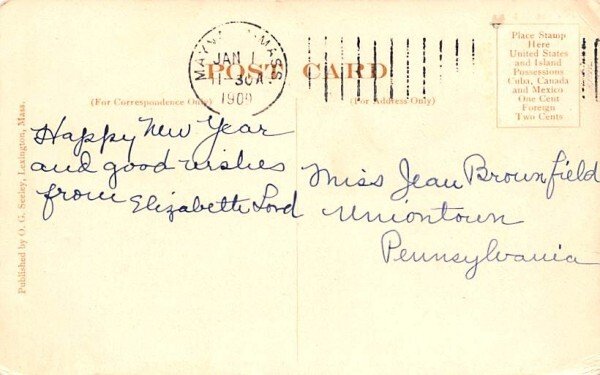 MAYNARD MASS.
JAN 1
11-30A
1909
POST CARD
(For Correspondence Only)
(For Address Only)
Place Stamp
Here
United States
and Island
Possessions
Cuba, Canada
and Mexico
One Cent
Foreign
Two Cents
Happy New Year
and good wishes
from Elizabeth Lord
Miss Jean Brownfield
Uniontown
Pennsylvania
Published by O. G. Seeley, Lexington, Mass.